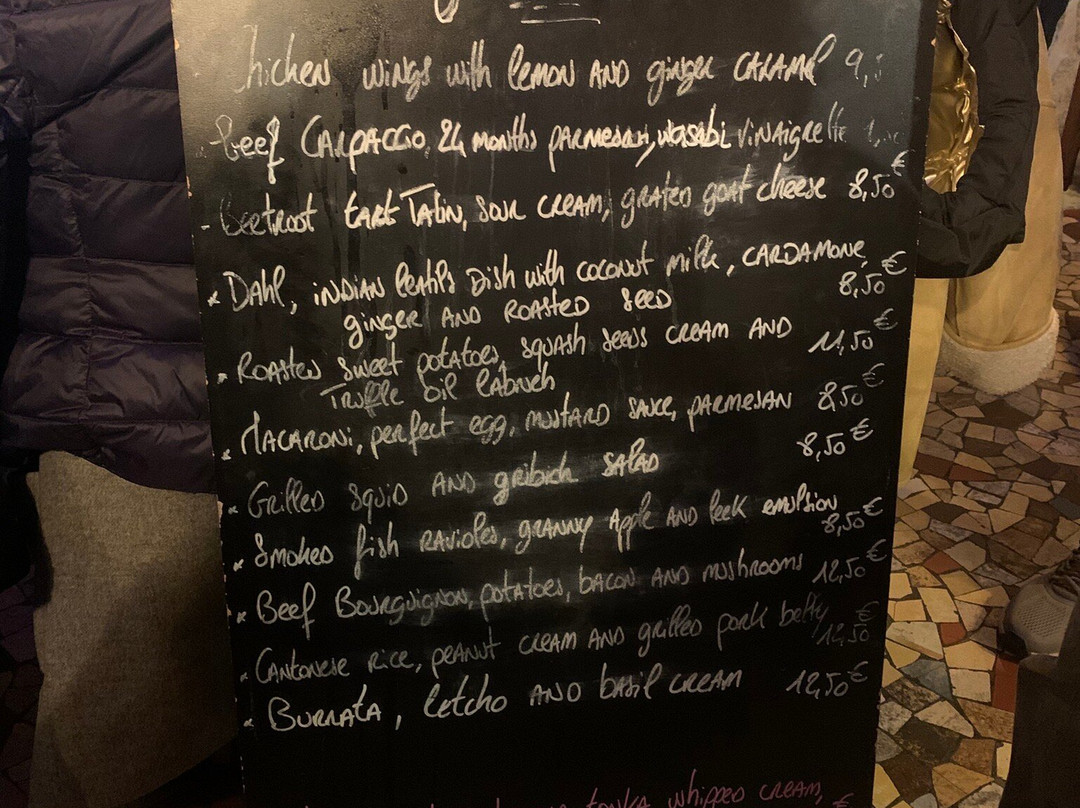 Chicken wings with lemon AND ginger CARAMEL 9,
- Beef CARPACCIO, 24 months PARMESAN, wasabi vinaigrette
- Beetroot tart Tatin, sour CREAM, graten goat cheese 8,50 €
* DAHL, INDIAN lentils Dish with coconut milk, CARDAMONE,
ginger AND ROASTED SEED 8,50 €
* ROASTED sweet potatoes, squash seeds CREAM AND 11,50 €
Truffle oil labneh
* MACARONi, perfect egg, mustard sauce, PARMESAN 8,50 €
* Grilled squid AND gribich SALAD 8,50 €
* Smoked fish RAVioles, granny Apple AND leek emulsion 8,50 €
* Beef Bourguignon, potatoes, bacon AND mushrooms 12,50 €
* CANTONESE rice, peanut CREAM AND grilled pork belly 12,50 €
* BURRATA, letcho AND basil CREAM 12,50 €
tonka whipped CREAM,
€